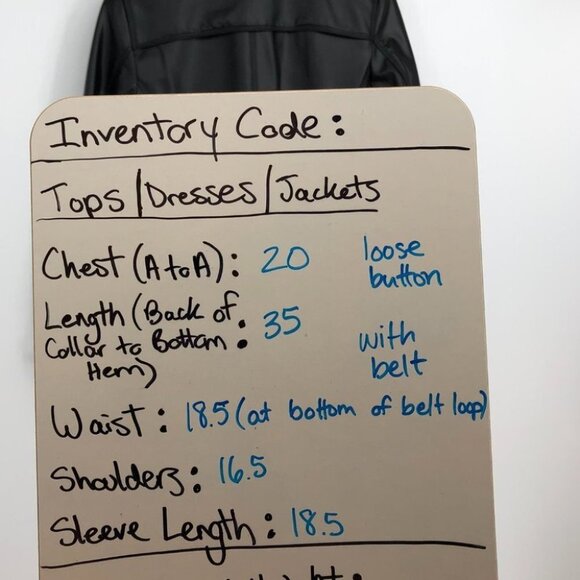 Inventory Code:
Tops/Dresses/Jackets
Chest (A to A): 20 loose
button
Length (Back of
Collar to Bottom : 35
Hem)
with
belt
Waist: 18.5 (at bottom of belt loop)
Shoulders: 16.5
Sleeve Length: 18.5